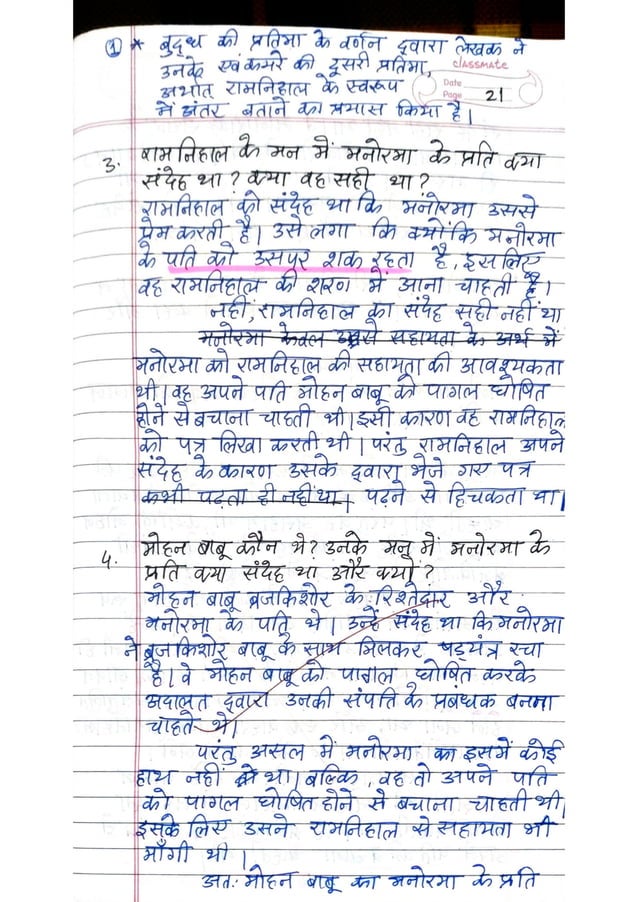 ① * बुद्ध की प्रतिमा के वर्णन द्वारा लेखक ने
उनके एवं कमरे की दूसरी प्रतिमा,
classmate
अर्थात रामनिहाल के स्वरूप
Date
में अंतर बताने का प्रयास किया है।
Page 21
3. रामनिहाल के मन में मनोरमा के प्रति क्या
संदेह था? क्या वह सही था?
रामनिहाल को संदेह था कि मनोरमा उससे
प्रेम करती है। उसे लगा कि क्योंकि मनोरमा
के पति को उसपर शक रहता है, इसलिए
वह रामनिहाल की शरण में आना चाहती है।
नहीं, रामनिहाल का संदेह सही नहीं था
मनोरमा केवल उससे सहायता के अर्थ में
मनोरमा को रामनिहाल की सहायता की आवश्यकता
थी। वह अपने पति मोहन बाबू को पागल घोषित
होने से बचाना चाहती थी। इसी कारण वह रामनिहाल
को पत्र लिखा करती थी। परंतु रामनिहाल अपने
संदेह के कारण उसके द्वारा भेजे गए पत्र
कभी पढ़ता ही नहीं था। पढ़ने से हिचकता था।
4. मोहन बाबू कौन थे? उनके मन में मनोरमा के
प्रति क्या संदेह था और क्यों?
मोहन बाबू ब्रजकिशोर के रिश्तेदार और
मनोरमा के पति थे। उन्हें संदेह था कि मनोरमा
ने ब्रजकिशोर बाबू के साथ मिलकर षड्यंत्र रचा
है। वे मोहन बाबू को पागल घोषित करके
अदालत द्वारा उनकी संपति के प्रबंधक बनना
चाहते थे।
परंतु असल में मनोरमा का इसमें कोई
हाथ नहीं था। बल्कि, वह तो अपने पति
को पागल घोषित होने से बचाना चाहती थी।
इसके लिए उसने रामनिहाल से सहायता भी
माँगी थी।
अतः मोहन बाबू का मनोरमा के प्रति